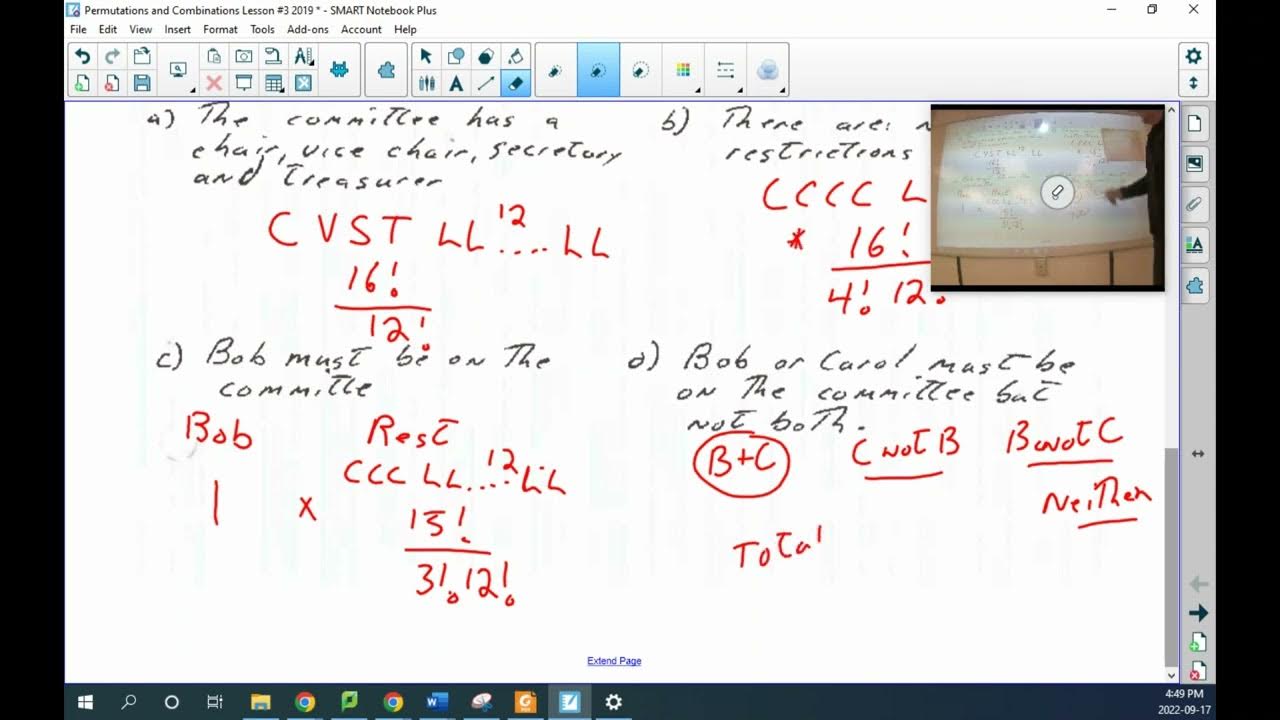 Permutations and Combinations Lesson #3 2019 * - SMART Notebook Plus
File Edit View Insert Format Tools Add-ons Account Help
a) The committee has a
chair, vice chair, secretory
and treasurer
C V S T LL 12 .... LL
16!
12!
b) There are
restrictions
C C C C L
* 16!
4! 12!
c) Bob must be on the
committe
Bob Rest
CCC LL 12 .... LL
1 x 15!
3! 12!
d) Bob or Carol must be
on the committee but
not both.
B+C C not B B not C
Neither
Total
Extend Page
4:49 PM
2022-09-17